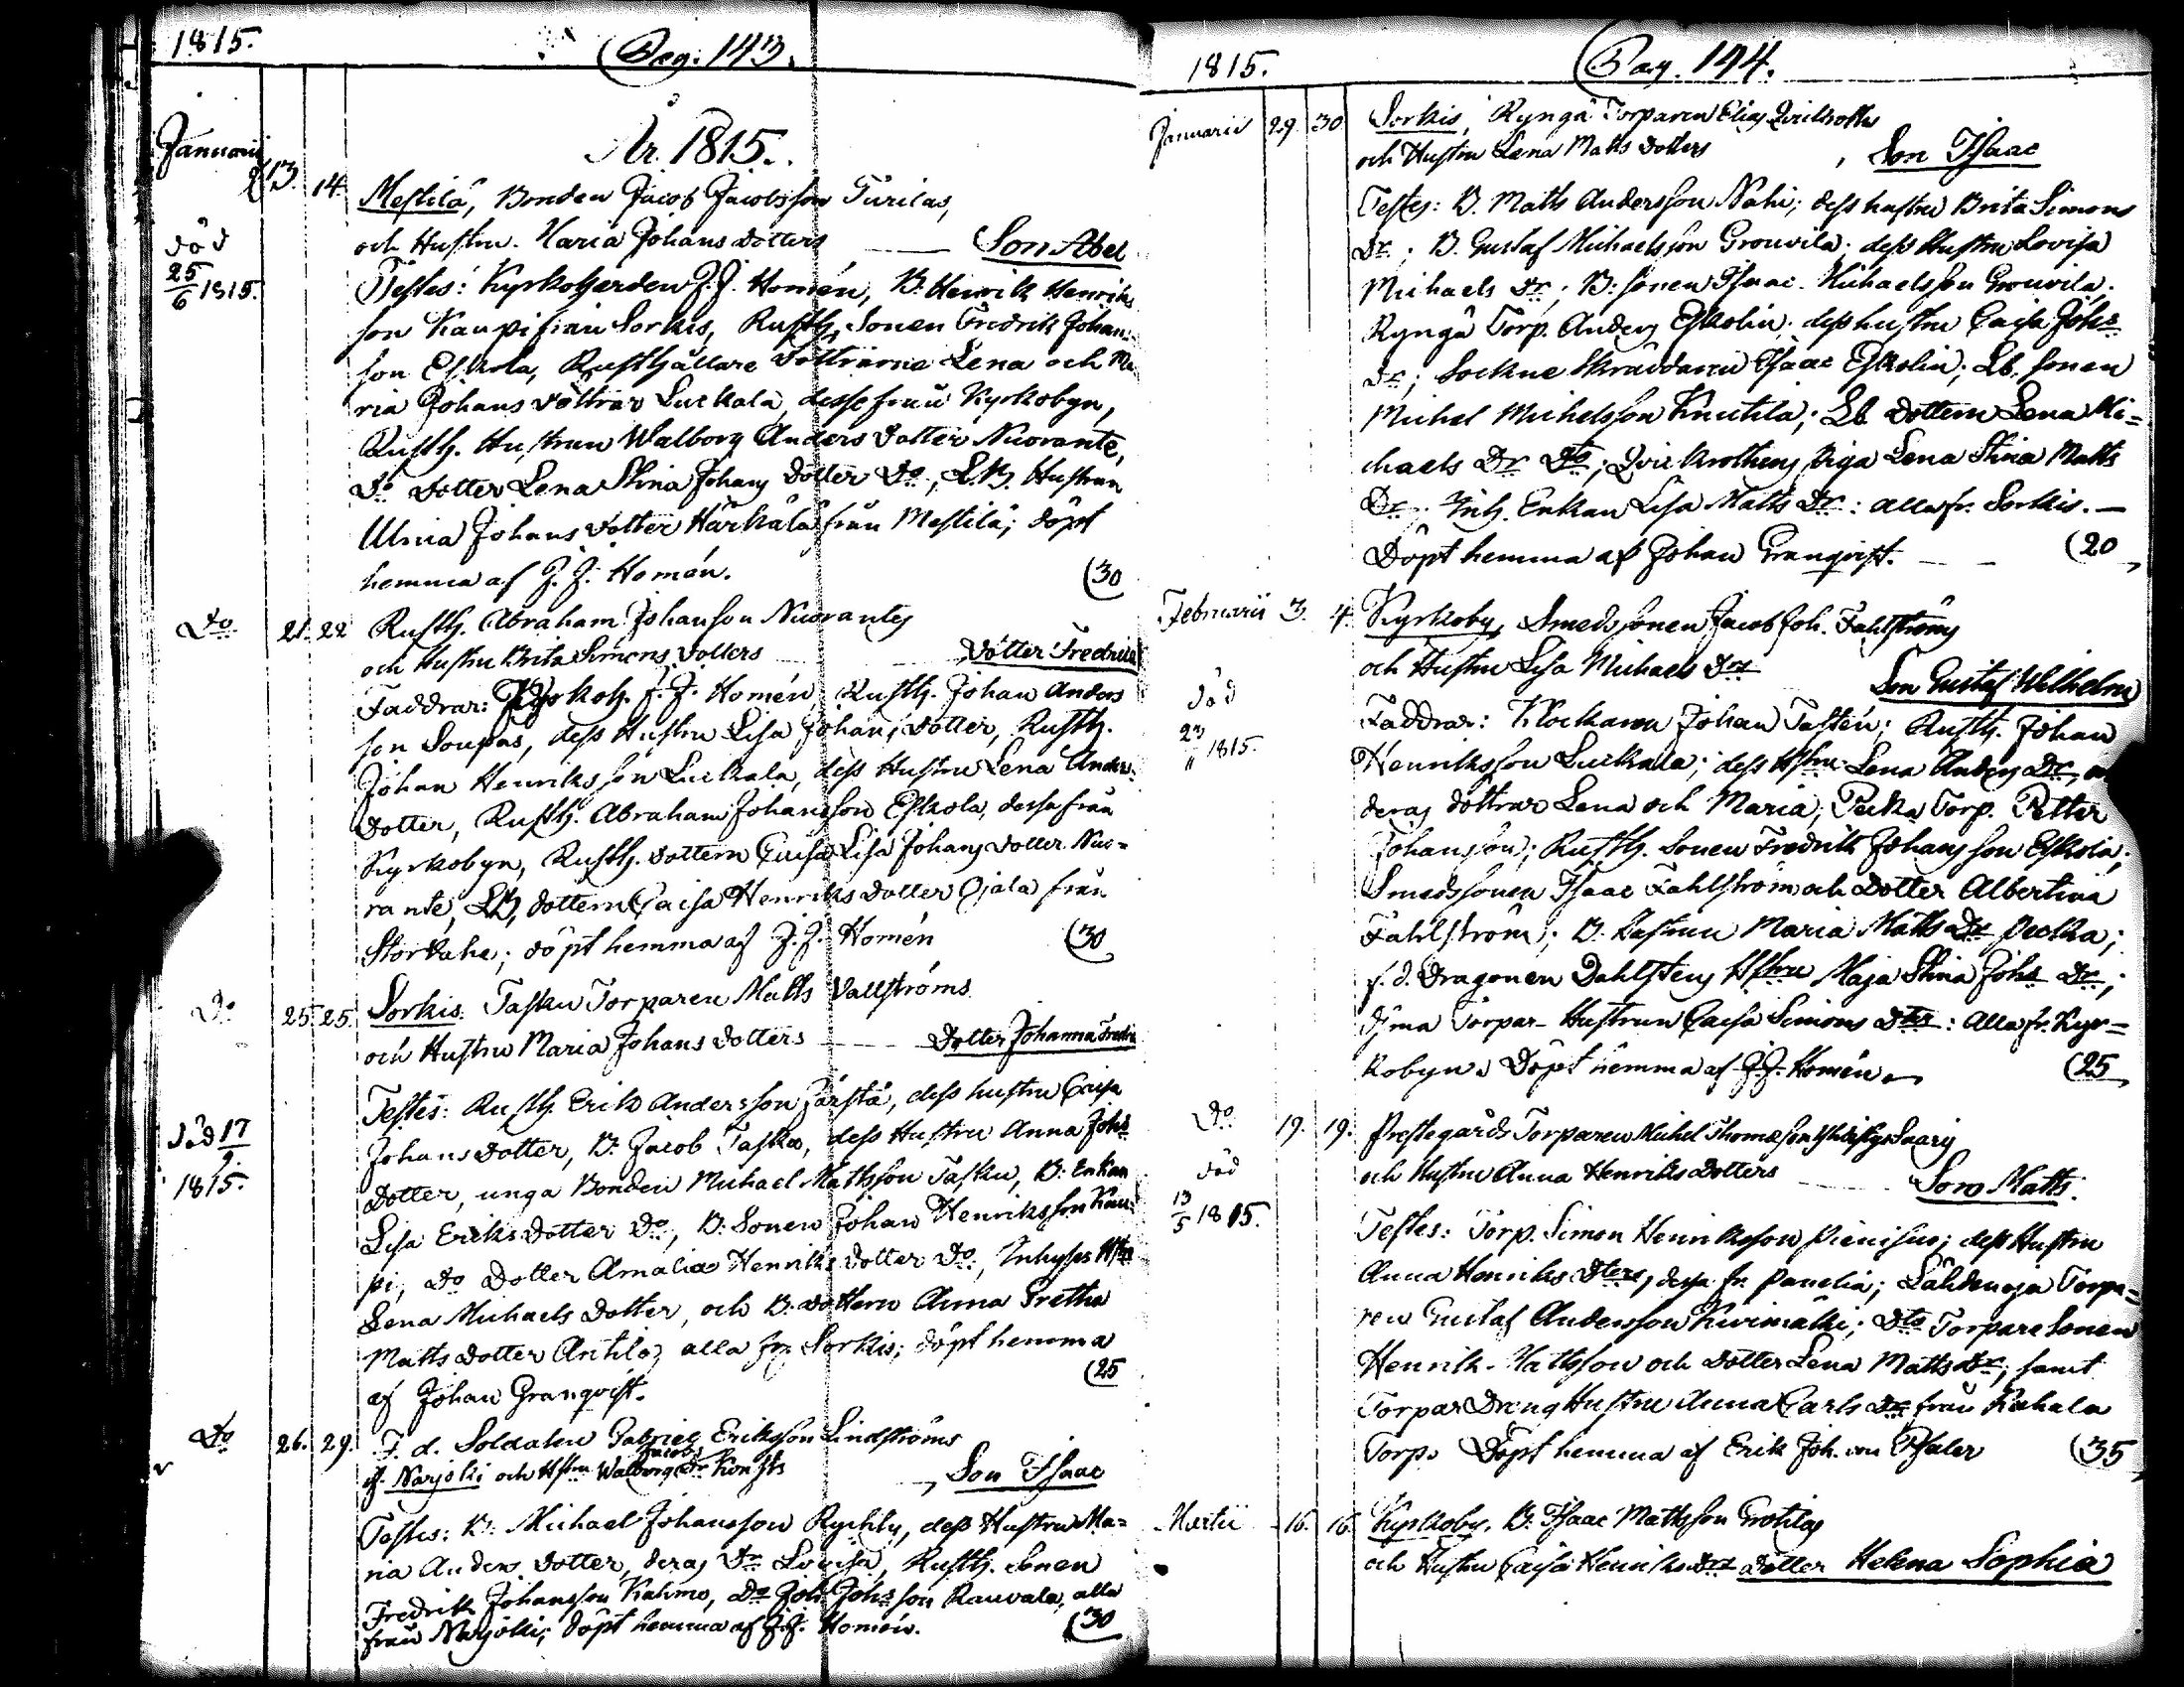 1815.
Pag. 143.
År 1815.
Januarii 13. 14. Mestilä, Bonden Jacob Jacobsson Turilas,
och Hustru Maria Johans dotters Son Abel
död 25/6 1815.
Testes: Kyrkoherden J. J. Homén, B. Henrik Henriks
son Kaupi från Sorkis, Rusth. Sonen Fredrik Johan-
son Eskola, Rusthållare döttrarne Lena och Ma
ria Johans döttrar Luckala, desse från Kyrkobyn,
Rusth. Hustrun Walborg Anders dotter Nuorante,
Do dotter Lena Stina Johans dotter Do, LB. Hustrun
Ulrica Johans dotter Härkälä från Mestilä; döpt
hemma af J. J. Homén. (30
Do 21. 22 Rusth. Abraham Johanson Nuorantes
och Hustru Brita Simons dotters dotter Fredrica
Faddrar: Kyrkoh. J. J. Homén, Rusth. Johan Anders
son Soupas, dess Hustru Lisa Johans dotter, Rusth.
Johan Henriksson Luckala, dess Hustru Lena Anders
dotter, Rusth. Abraham Johansson Eskola, dessa från
Kyrkobyn, Rusth. dottern Caisa Lisa Johans dotter Nuo=
rante, LB, dottern Caisa Henriks dotter Ojala från
Storkahe; döpt hemma af J. J. Homén (30
Do 25. 25. Sorkis. Tasku Torparen Matts Vallströms
och Hustru Maria Johans dotters Dotter Johanna Fredra
Testes: Rusth. Erik Andersson Järstä, dess hustru Caisa
död 17/9 1815.
Johans dotter, B. Jacob Tasku, dess Hustru Anna Johs
dotter, unga Bonden Michael Mattsson Tasku, B. Enkan
Lisa Eriks dotter Do, B. Sonen Johan Henriksson Kau-
pi, Do Dotter Amalia Henriks dotter Do, Inhyses Hstru
Lena Michaels Dotter, och B. dottern Anna Gretha
Matts dotter Antila, alla fr. Sorkis; döpt hemma
af Johan Granqvist. (25
Do 26. 29. F. d. Soldaten Gabriel Eriksson Lindströms
Jacobs
Narjoki och Hstru Walborg Dr Son Isaac
Testes: B. Michael Johansson Rychty, dess Hustru Ma=
ria Anders dotter, deras Dr Lovisa, Rusth. Sonen
Fredrik Johansson Kahmo, Do Joh. Johs son Rauvala, alla
från Narjoki; döpt hemma af J. J. Homén. (30
1815.
Pag. 144.
Januarii 29. 30. Sorkis, Ryngä Torparen Elias
och Hustru Lena Matts dotters Son Isaac
Testes: B. Matts Andersson Nahi; dess hustru Brita Simons
Dr; B. Gustaf Michaelsson Grouvila; dess Hustru Lovisa
Michaels Dr; B. sonen Isaac Michaelsson Grouvila.
Ryngä Torp. Anders Eskolin; dess hustru Caisa Johs
Dr; Sockne Skräddaren Isaac Eskolin; Lb. sonen
Michel Michelsson Knutila; Lb. dottern Lena Mi=
chaels Dr Do; piga Lena Stina Matts
Dr; Inh. Enkan Lisa Matts Dr: alla fr. Sorkis.
Döpt hemma af Johan Granqvist. (20
Februarii 3. 4. Kyrkoby, Smeds sonen Jacob Joh. Fahlströms
och Hustru Lisa Michaels Drs Son Gustaf Wilhelm
död 23/" 1815.
Faddrar: Klockaren Johan Tastén; Rusth. Johan
Henriksson Luckala; dess Hstru Lena Anders Dr,
deras döttrar Lena och Maria; Pecka Torp. Petter
Johansson; Rusth. Sonen Fredrik Johansson Eskola;
Smedssonen Isaac Fahlström och Dotter Albertina
Fahlström; B. hustrun Maria Matts Dr Pecka;
f. d. Dragonen Dahlstens Hstru Maja Stina Johs Dr;
Torpar Hustrun Caisa Simons Dtr: Alla fr. Kyr=
kobyn. Döpt hemma af J. J. Homén. (25
Do 19. 19. Prestegårds Torparen Michel Thomasson
och Hustru Anna Henriks Dotters Son Matts.
död 13/5 1815.
Testes: Torp. Simon Henriksson; dess Hustru
Anna Henriks Dters, dessa fr. Panelia; Torpa=
ren Gustaf Andersson Kivimäki; Dto Torpare Sonen
Henrik Mattsson och dotter Lena Matts Dr; samt
Torpar Dreng Hustru Anna Carls Dr från Kahala
Torp. Döpt hemma af Erik Joh. von Pfaler (35
Martii 16. 16. Kyrkoby. B. Isaac Mattsson Grotilas
och Hustru Caisa Henriks Drs dotter Helena Sophia